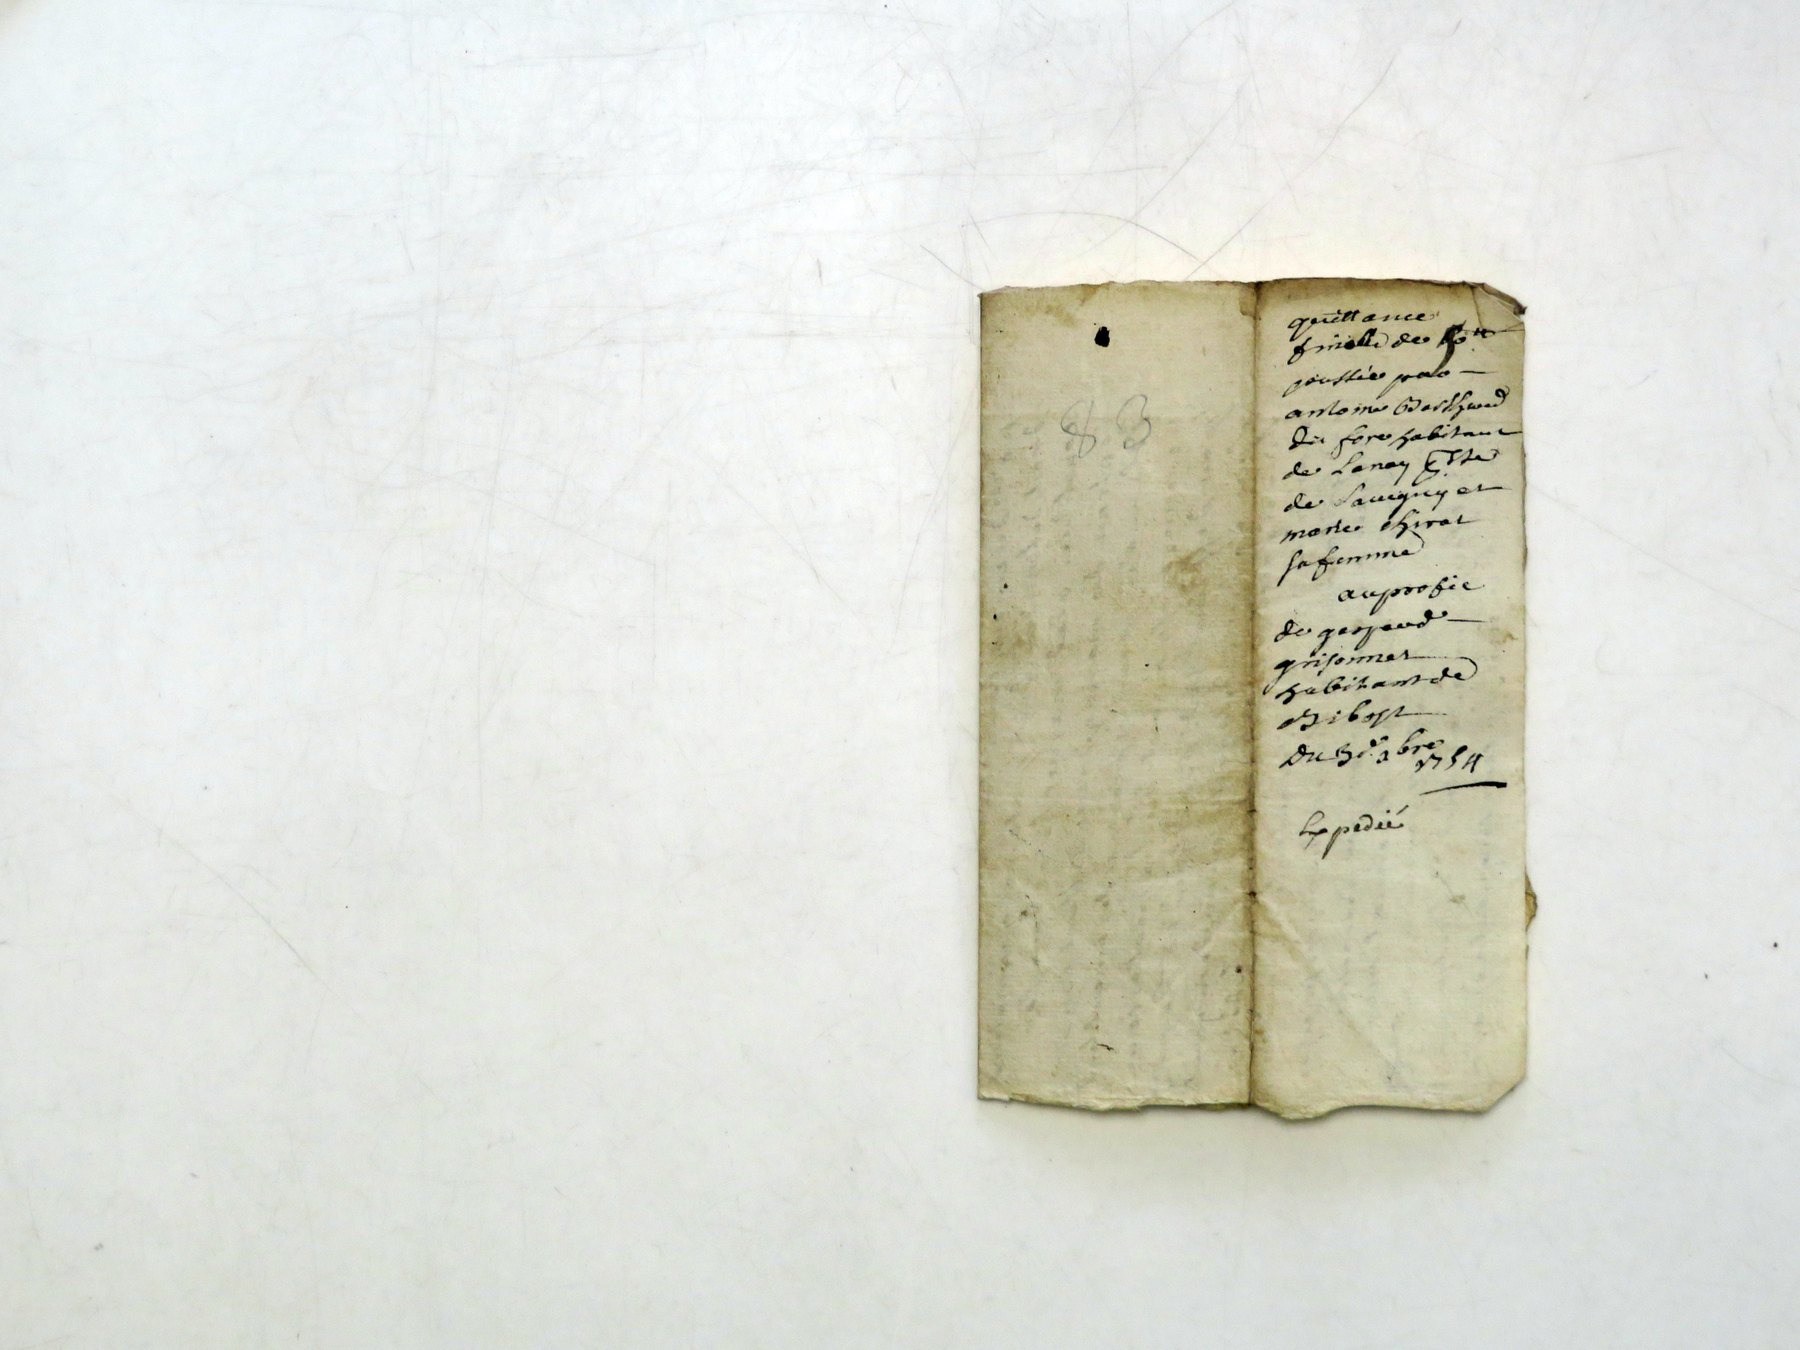 83
quittance
finalle de 60ᵗᵗ
passée par
antoine
du fore habitant
de Lanay psse
de Savigny et
marie chirat
sa femme
au profit
de gaspard
grisonnet
habitant de
Bibost
Du 3ᵉ 9bre 1754
Expedié